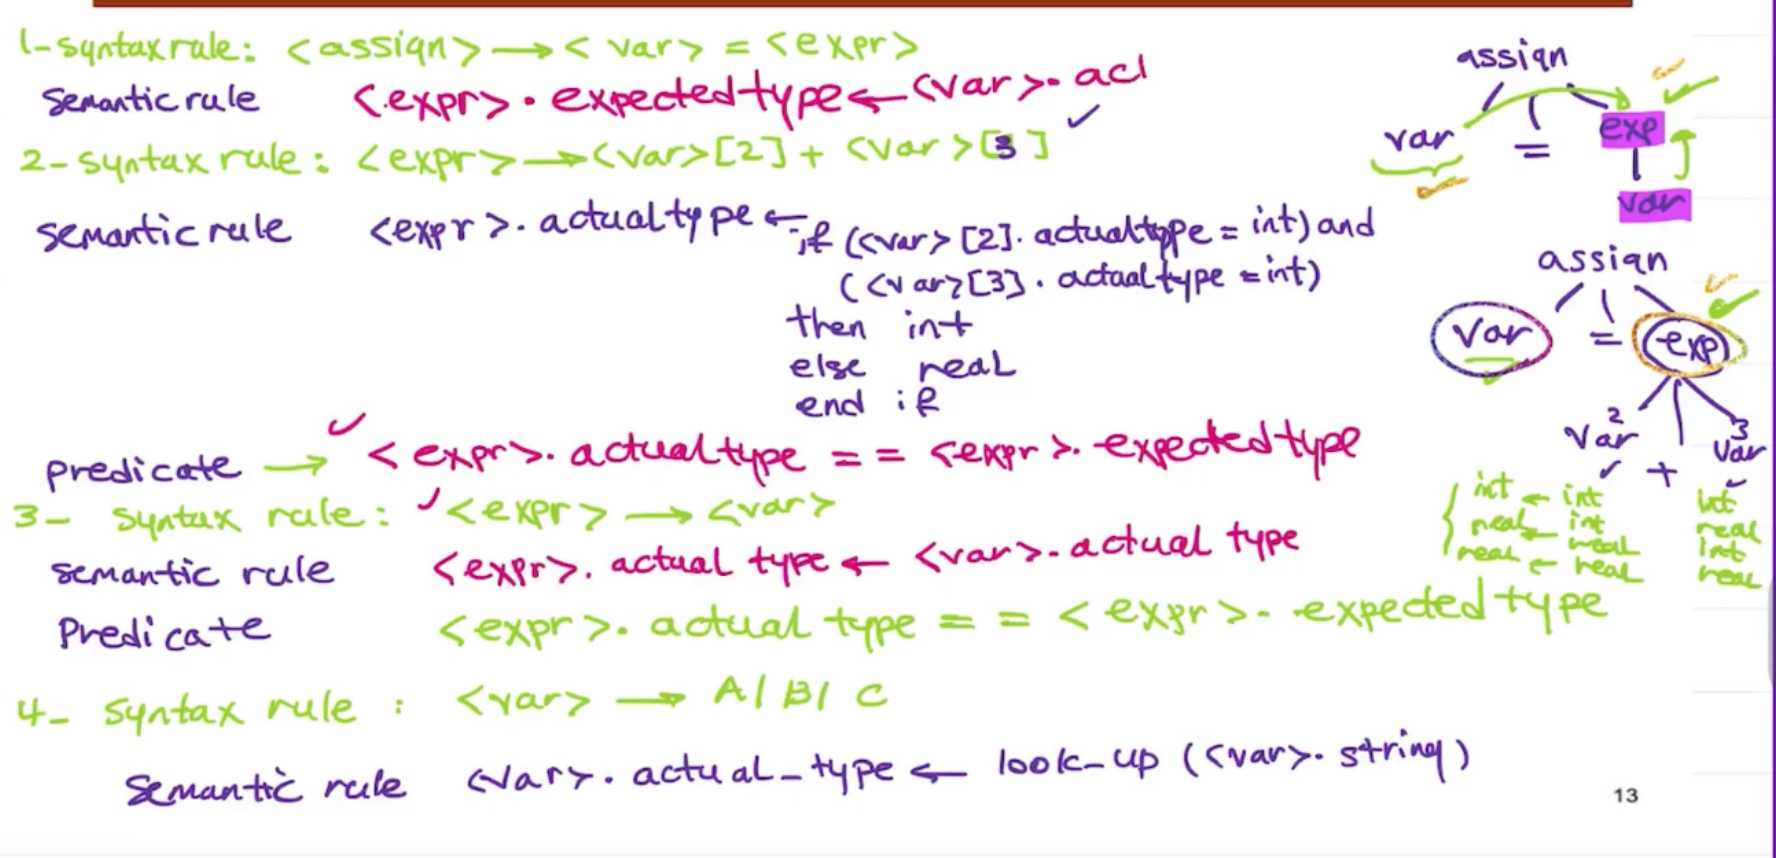 1-syntax rule: <assign> → <var> = <expr>
Semantic rule <expr>.expectedtype ← <var>.acl
2-syntax rule: <expr> → <var>[2] + <var>[3]
semantic rule <expr>.actualtype ← if (<var>[2].actualtype = int) and
(<var>[3].actualtype = int)
then int
else real
end if
predicate → <expr>.actualtype == <expr>.expectedtype
3- syntax rule: <expr> → <var>
semantic rule <expr>.actual type ← <var>.actual type
Predicate <expr>.actual type == <expr>.expected type
4- syntax rule : <var> → A/B/C
Semantic rule <var>.actual_type ← look_up (<var>.string)
assign
var = exp
var
assign
var = exp
2 3
var + var
int ← int int
real ← int real
real int
real ← real real
13